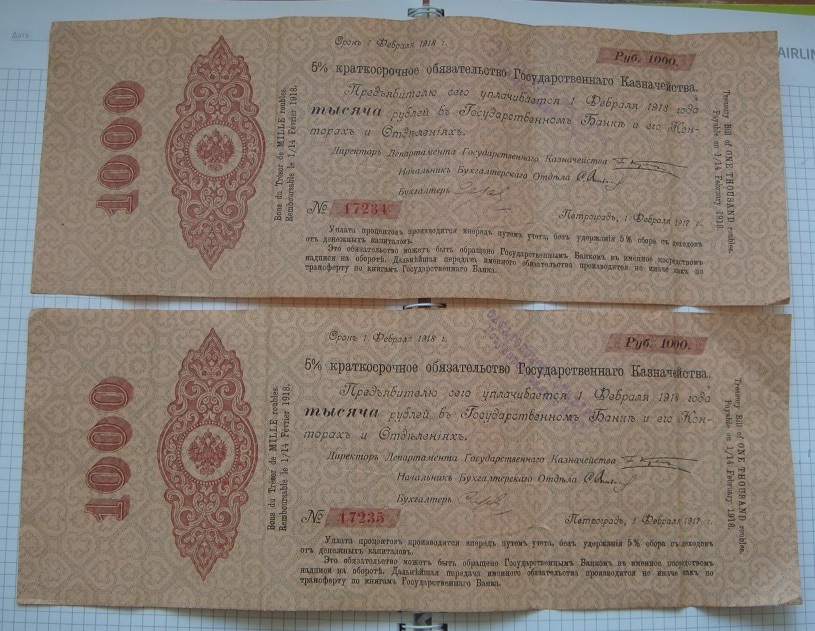 Дата
AIRLIN
Срокъ 1 Февраля 1918 г.
Руб. 1000.
5% краткосрочное обязательство Государственнаго Казначейства.
Предъявителю сего уплачивается 1 Февраля 1918 года
тысяча рублей въ Государственномъ Банкѣ и его Кон-
торахъ и Отдѣленіяхъ.
Директоръ Департамента Государственнаго Казначейства
Начальникъ Бухгалтерскаго Отдѣла
Бухгалтеръ
№ 47234
Петроградъ, 1 Февраля 1917 г.
Уплата процентовъ производится впередъ путемъ учета, безъ удержанія 5% сбора съ доходовъ
отъ денежныхъ капиталовъ.
Это обязательство можетъ быть обращено Государственнымъ Банкомъ въ именное посредствомъ
надписи на оборотѣ. Дальнѣйшая передача именного обязательства производится не иначе какъ по
трансферту по книгамъ Государственнаго Банка.
1000
Bons du Trésor de MILLE roubles.
Remboursable le 1/14 Février 1918.
Treasury Bill of ONE THOUSAND roubles.
Payable on 1/14 February 1918.
Срокъ 1 Февраля 1918 г.
Руб. 1000.
5% краткосрочное обязательство Государственнаго Казначейства.
Предъявителю сего уплачивается 1 Февраля 1918 года
тысяча рублей въ Государственномъ Банкѣ и его Кон-
торахъ и Отдѣленіяхъ.
Директоръ Департамента Государственнаго Казначейства
Начальникъ Бухгалтерскаго Отдѣла
Бухгалтеръ
№ 47235
Петроградъ, 1 Февраля 1917 г.
Уплата процентовъ производится впередъ путемъ учета, безъ удержанія 5% сбора съ доходовъ
отъ денежныхъ капиталовъ.
Это обязательство можетъ быть обращено Государственнымъ Банкомъ въ именное посредствомъ
надписи на оборотѣ. Дальнѣйшая передача именного обязательства производится не иначе какъ по
трансферту по книгамъ Государственнаго Банка.
1000
Bons du Trésor de MILLE roubles.
Remboursable le 1/14 Février 1918.
Treasury Bill of ONE THOUSAND roubles.
Payable on 1/14 February 1918.